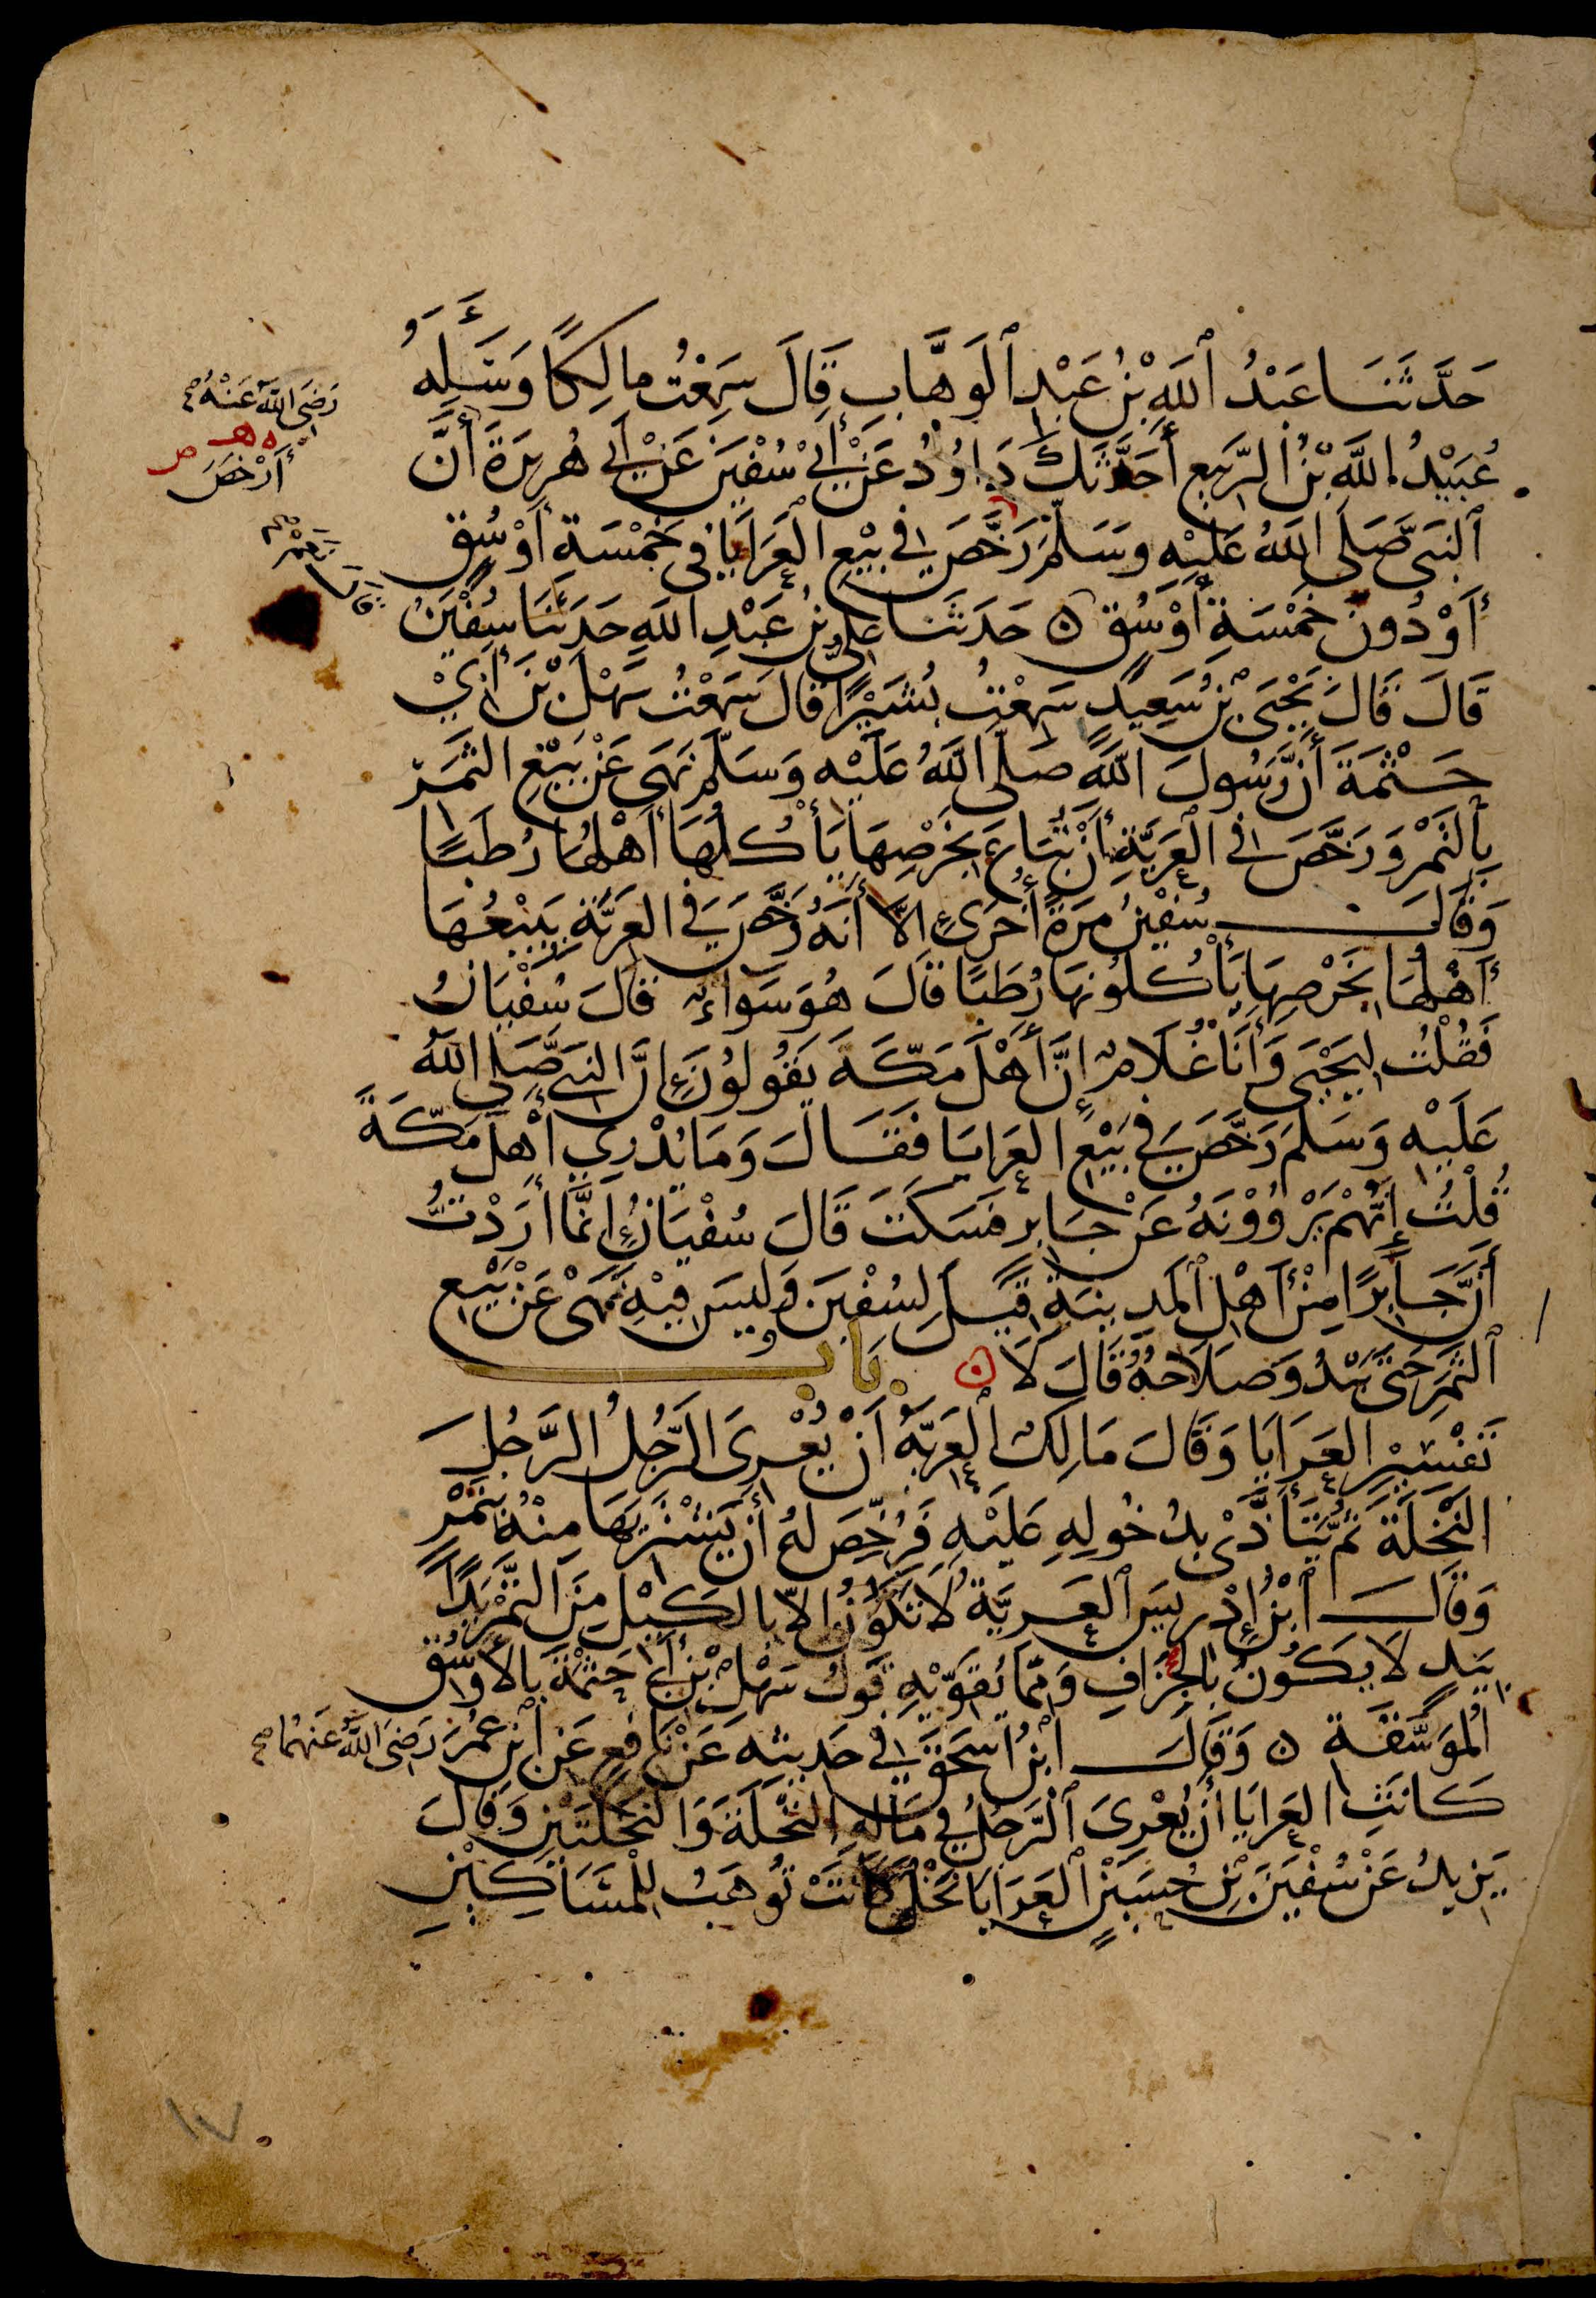 حَدَّثَنَا عَبْدُ ٱللَّهِ بْنُ عَبْدِ ٱلْوَهَّابِ قَالَ سَمِعْتُ مالِكًا وَسَأَلَهُ
عُبَيْدُ اللَّهِ بْنُ الرَّبِيعِ أَحَدَّثَكَ دَاوُدُ عَنْ أَبِي سُفْيَنَ عَنْ أَبِي هُرَيرَةَ أَنَّ
ٱلنَّبِيَّ صَلَّى اللَّهُ عَلَيْهِ وَسَلَّمَ رَخَّصَ فِي بَيْعِ الْعَرَايَا فِي خَمْسَةِ أَوْسُقٍ
أَوْ دُونَ خَمْسَةِ أَوْسُقٍ ه حَدَثَنَا عَلِيُّ بْنُ عَبْدِ اللَّهِ حَدَثَنَا سُفْيَنُ
قَالَ قَالَ يَحْيَى بْنُ سَعِيدٍ سَمِعْتُ بُشَيْرًا قَالَ سَمِعْتُ سَهْلَ بْنَ أَبِيْ
حَثْمَةَ أَنَّ رَسُولَ اللَّهِ صَلَّى اللَّهُ عَلَيْهِ وَسَلَّمَ نَهَى عَنْ بَيْعِ الثَّمَرِ
بِالتَّمْرِ وَرَخَّصَ فِي الْعَرِيَّةِ أَنْ تُبَاعَ بِخَرْصِهَا يَأْكُلُهَا أَهْلُهَا رُطَبًا
وَقَالَ سُفْيَنُ مَرَّةً أُخْرَى إِلَّا أَنَّهُ رَخَّصَ فِي العَرِيَّةِ يَبِيْعُهَا
أَهْلُهَا بِخَرْصِهَا يَأْكُلُونَهَا رُطَبًا قَالَ هُوَ سَوَاءٌ قَالَ سُفْيَانُ
فَقُلْتُ لِيَحْيَى وَأَنَا غُلَامٌ إِنَّ أَهْلَ مَكَّةَ يَقُولُوْنَ إِنَّ النَّبِيَّ صَلَّى اللَّهُ
عَلَيْهِ وَسَلَّمَ رَخَّصَ فِي بَيْعِ العَرايَا فَقَالَ وَمَا يُدْرِي أَهْلَ مَكَّةَ
قُلْتُ إِنَّهُمْ يَرْوُوْنَهُ عَنْ جَابِرٍ فَسَكَتَ قَالَ سُفْيَانُ إِنَّمَا أَرَدْتُ
أَنَّ جَابِرًا مِنْ أَهْلِ ٱلْمَدِينَةِ قِيْلَ لِسُفْيَنَ وَلَيْسَ فِيْهِ نَهْيٌ عَنْ بَيْعِ
ٱلثَّمَرِ حَتَّى يَبْدُوَ صَلَاحُهُ قَالَ لَا ه بَابُ
تَفْسِيْرِ العَرَايَا وَقَالَ مَالِكٌ ٱلْعَرِيَّةُ أَنْ يُعْرِىَ الرَّجُلُ الرَّجُلَ
النَّخْلَةَ ثُمَّ يَتَأَذَّى بِدُخُولِهِ عَلَيْهِ فَرُخِّصَ لَهُ أَنْ يَشْتَرِيَهَا مِنْهُ بِتَمْرٍ
وَقَالَ ٱبْنُ إِدْرِيسَ ٱلْعَرِيَّةُ لَا تَكُوْنُ إِلَّا بِالْكَيْلِ مِنَ التَّمْرِ يَدًا
بِيَدٍ لَا يَكُونُ بِالْجِزَافِ وَمِمَّا يُقَوِّيْهِ قَوْلُ سَهْلِ بْنِ أَبِي حَثْمَةَ بِالأَوْسُقِ
الْمُوَسَّقَةِ ه وَقَالَ ابْنُ إِسْحَقَ فِي حَدِيثِهِ عَنْ نَافِعٍ عَنِ ابْنِ عُمَرَ رَضِيَ اللَّهُ عَنْهُمَا صح
كَانَتِ العَرَايَا أَنْ يُعْرِىَ ٱلرَّجُلُ فِي مَالِهِ النَّخْلَةَ وَالنَّخْلَتَيْنِ وَقَالَ
يَزِيدُ عَنْ سُفْيَنَ بْنِ حُسَيْنٍ ٱلْعَرَايَا نَخْلٌ كَانَتْ تُوهَبُ لِلْمَسَاكِيْنِ
رَضِيَ اللَّهُ عَنْهُ صح
ه هـ ص
أَرْخَصَ
قَالَ نَعَمْ صح
١٧